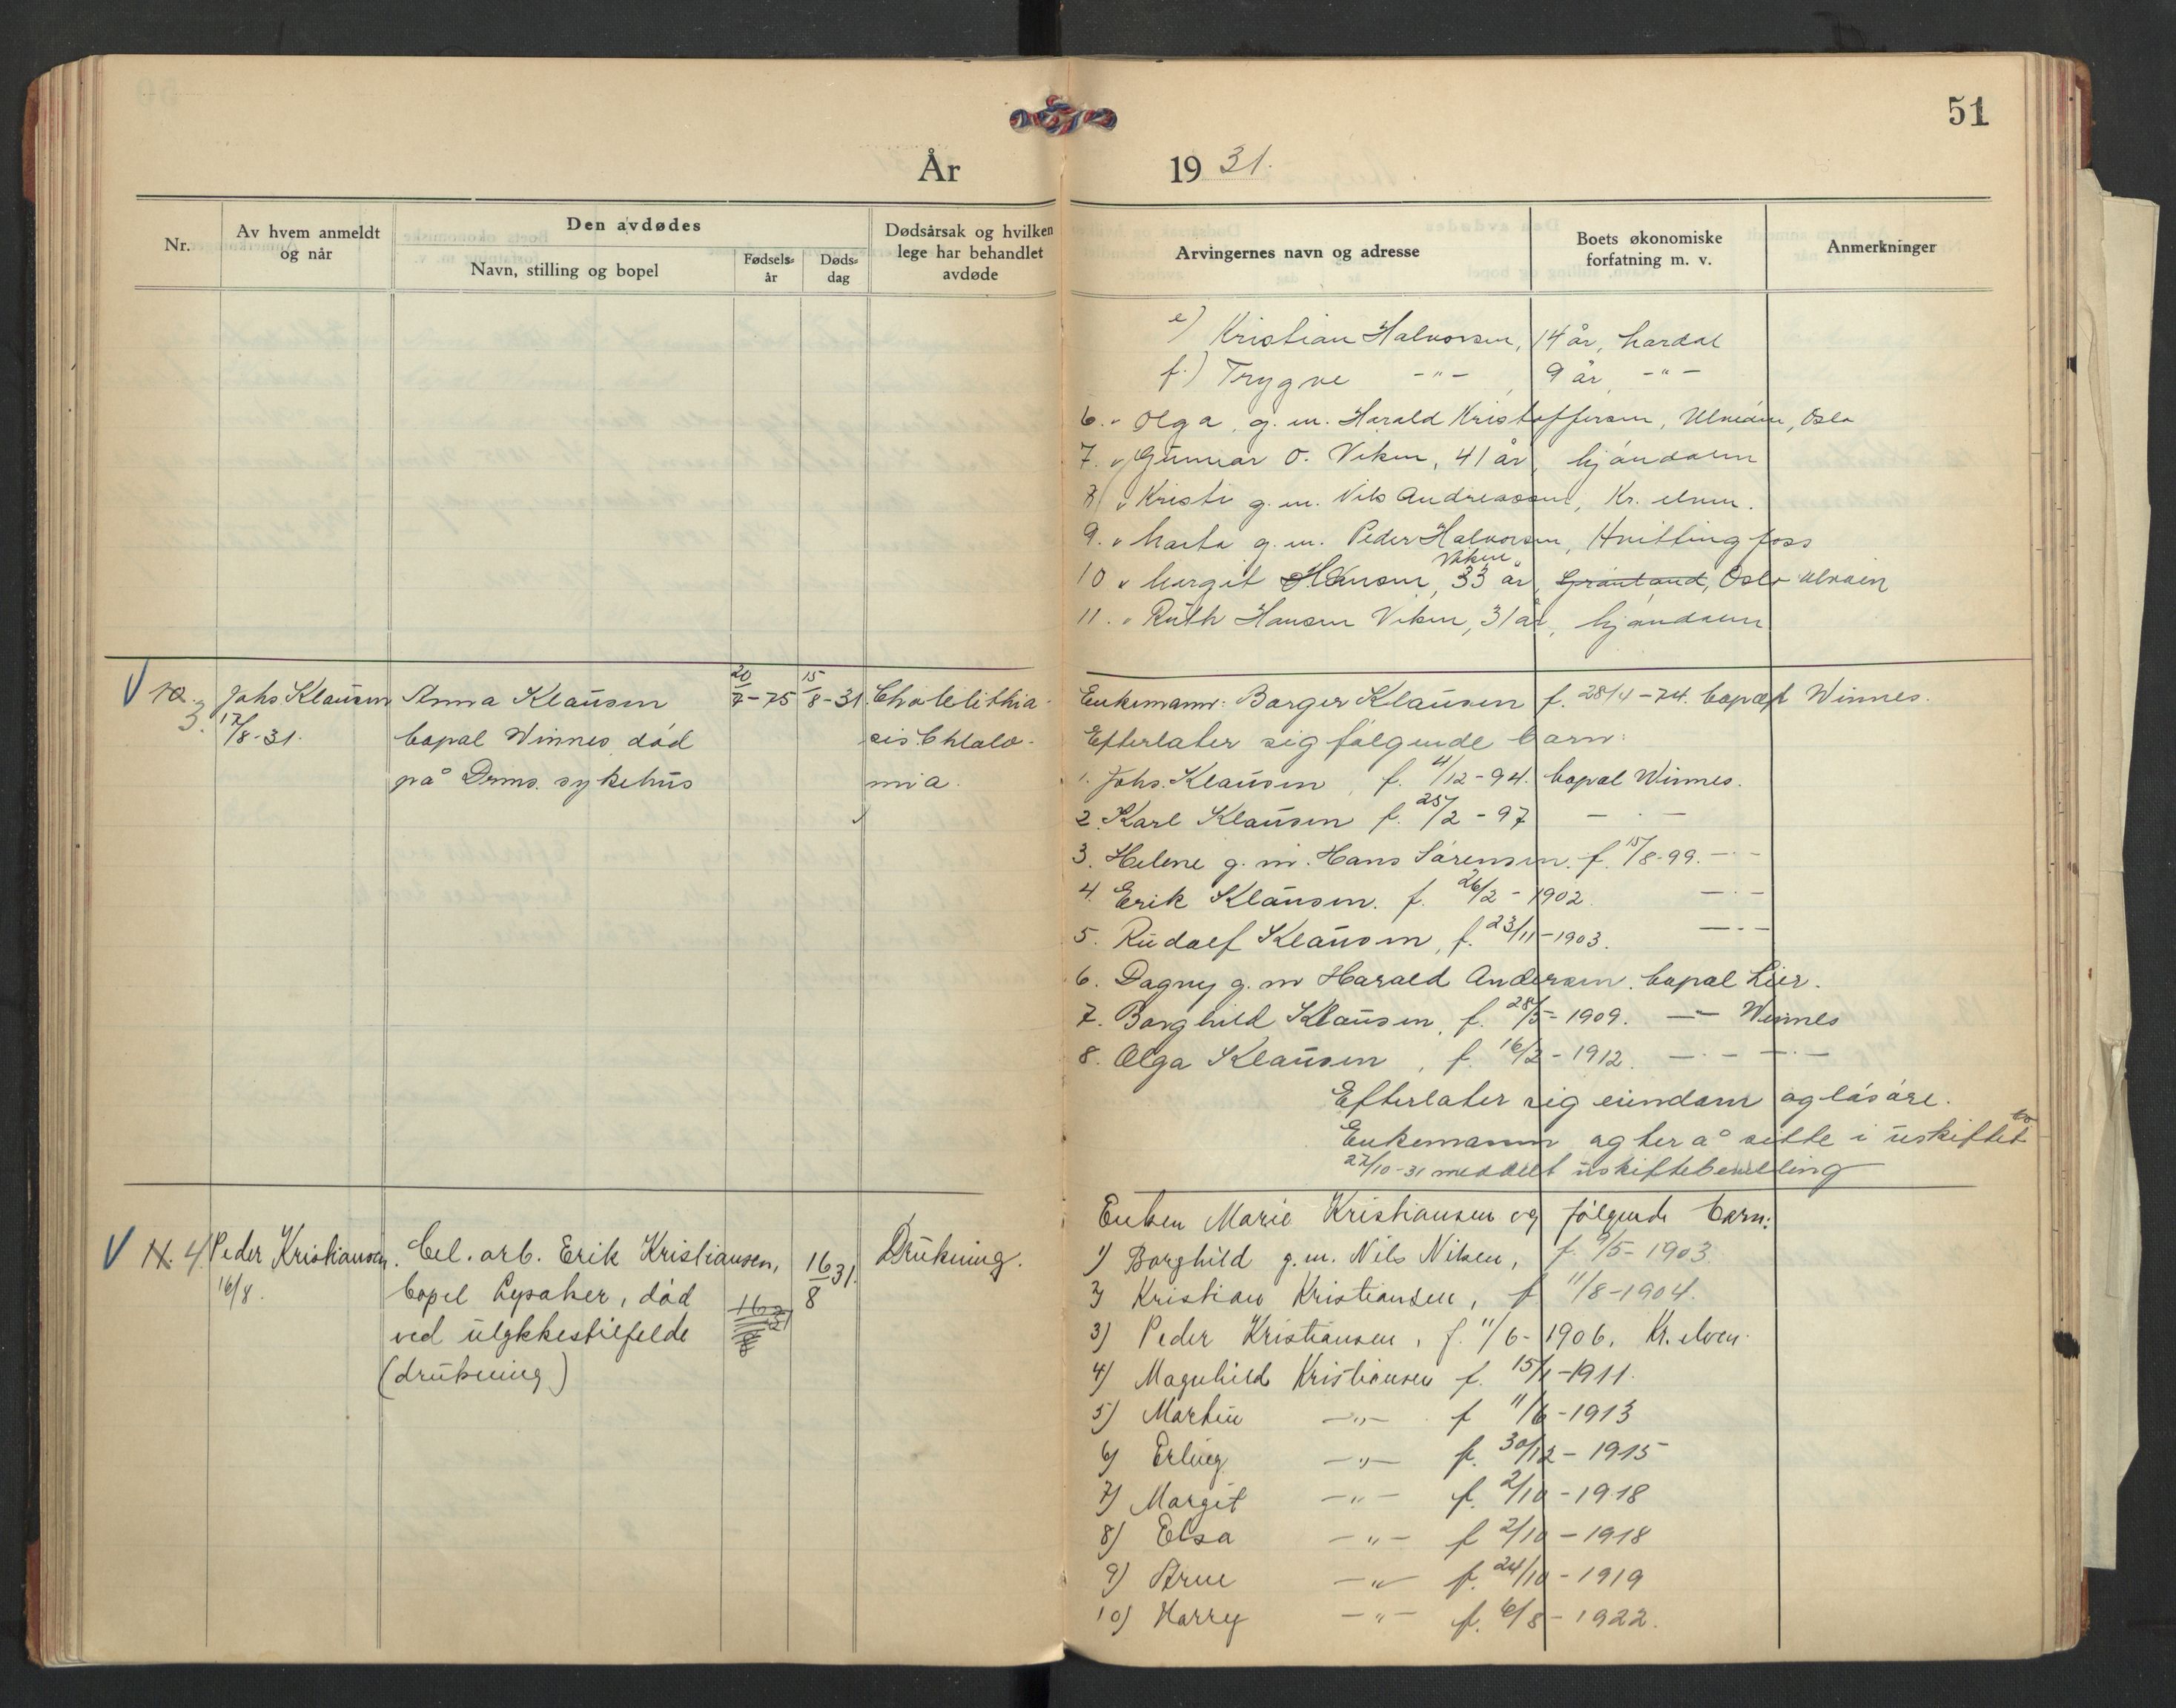 51
År 1931.
Nr.
Av hvem anmeldt og når
Den avdødes
Navn, stilling og bopel
Fødsels-år
Døds-dag
Dødsårsak og hvilken lege har behandlet avdøde
Arvingernes navn og adresse
Boets økonomiske forfatning m. v.
Anmerkninger
e) Kristian Halvorsen, 14 år,
f.) Trygve -"- , 9 år, -"-
6. " Olga, g. m. Harald Kristoffersen, Ulvøien, Oslo
7. " Gunnar O. Viken, 41 år, Mjøndalen
8) " Kristi g. m. Nils Andreassen, Kr. elven.
9. " Marta g. m. Peder Halvorsen, Hvittingfoss
10 " Margit Hansen Viken, 33 år, Grønland, Oslo Ulvøien
11. " Ruth Hansen Viken, 31 år, Mjøndalen
10. 3. Johs. Klausen Anna Klausen 20/7-75 15/8-31 Cholelithia-
17/8-31. bopel Winnes, død sis.
på Drms. sykehus mia.
Enkemann: Borger Klausen f. 28/4-74. bopæl Winnes.
Efterlater sig følgende barn:
1. Johs. Klausen, f. 4/12-94. bopel Winnes.
2. Karl Klausen f. 25/2-97 - " -
3. Helene g. m. Hans Sørensen. f. 15/8-99. - " -
4. Erik Klausen. f. 26/2-1902. - " -
5. Rudolf Klausen, f. 23/11-1903. - " -
6. Dagny g. m Harald Andersen. bopel Lier.
7. Borghild Klausen, f. 28/5-1909. - " - Winnes
8. Olga Klausen, f. 16/2-1912. - " - - " -
Efterlater sig eiendom og løsøre.
Enkemannen agter å sitte i uskiftet bo
27/10-31 meddelt uskiftebevilling
11. 4. Peder Kristiansen. Cel. arb. Erik Kristiansen, 16/8 31. Drukning.
16/8. bopel Lysaker, død
ved ulykkestilfelde
(drukning)
Enken Marie Kristiansen og følgende barn:
1) Borghild g. m. Nils Nilsen, f. 9/5-1903.
2) Kristian Kristiansen, f 11/8-1904.
3) Peder Kristiansen, f. 11/6-1906. Kr. elven.
4) Magnhild Kristiansen f. 15/1-1911.
5) Martin -"- f 11/6-1913
6) Erling -"- f. 30/12-1915
7) Margit -"- f. 2/10-1918
8) Elsa -"- f 2/10-1918
9) Arne -"- f. 24/10-1919
10) Harry -"- f. 6/8-1922.